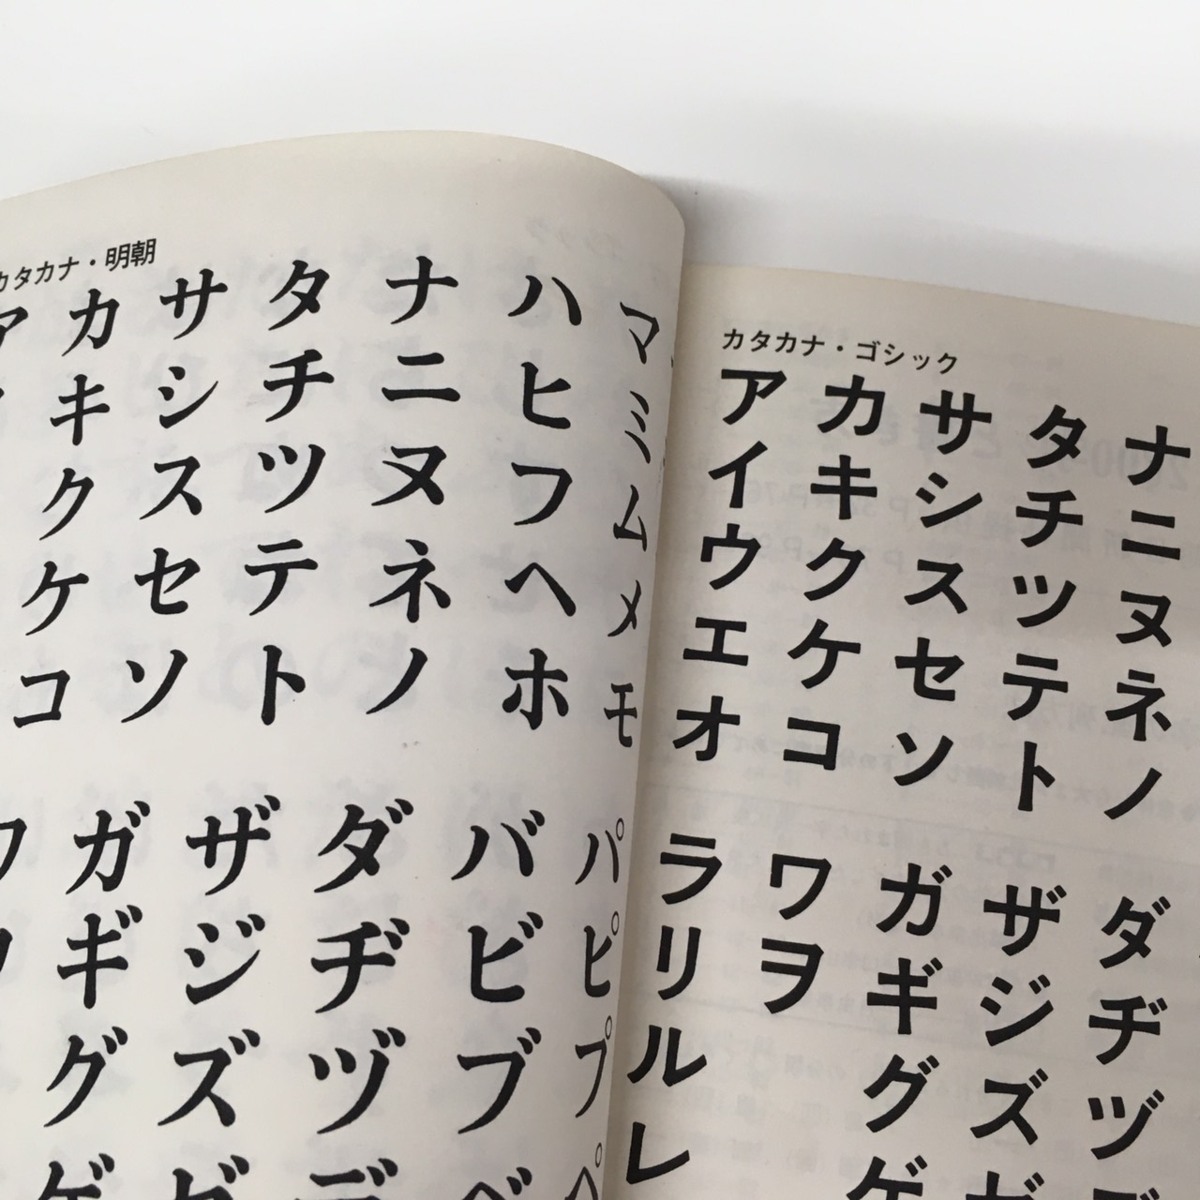 カタカナ・明朝
ア カ サ タ ナ ハ マ
キ シ チ ニ ヒ ミ
ク ス ツ ヌ フ ム
ケ セ テ ネ ヘ メ
コ ソ ト ノ ホ モ
ワ ガ ザ ダ バ パ
ヲ ギ ジ ヂ ビ ピ
グ ズ ヅ ブ プ
ゲ ゼ デ ベ ペ
カタカナ・ゴシック
ア カ サ タ ナ
イ キ シ チ ニ
ウ ク ス ツ ヌ
エ ケ セ テ ネ
オ コ ソ ト ノ
ラ ワ ガ ザ ダ
リ ヲ ギ ジ ヂ
ル グ ズ ヅ
レ ゲ ゼ デ